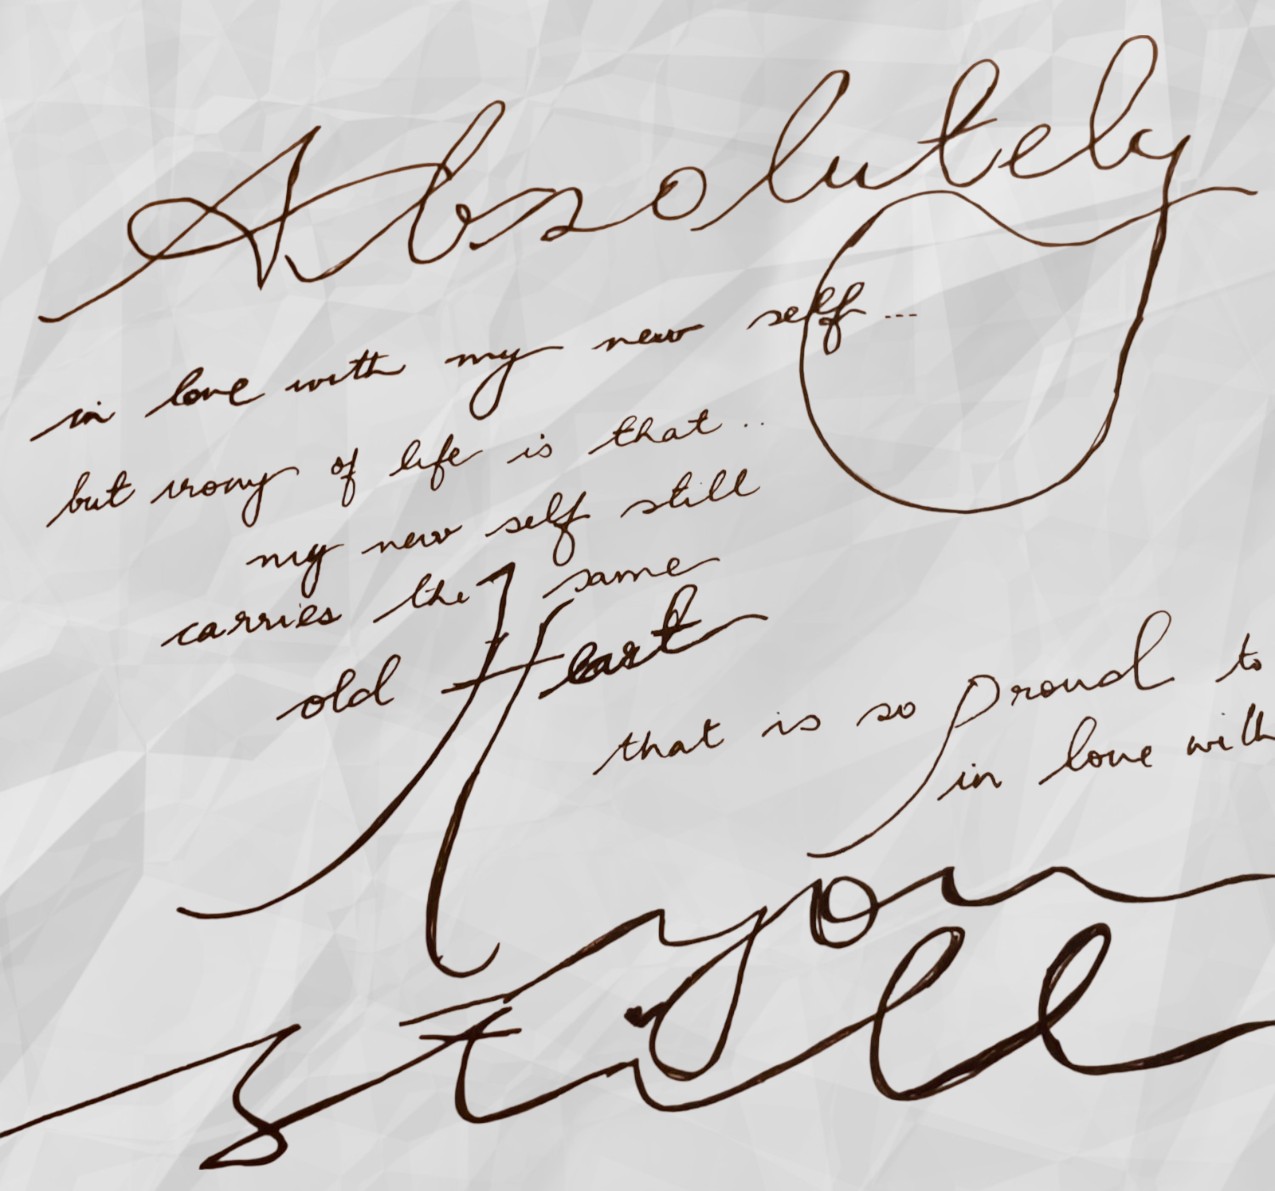 Absolutely
in love with my new self ...
but irony of life is that ..
my new self still
carries the same
old Heart
that is so proud to
in love with
you
still